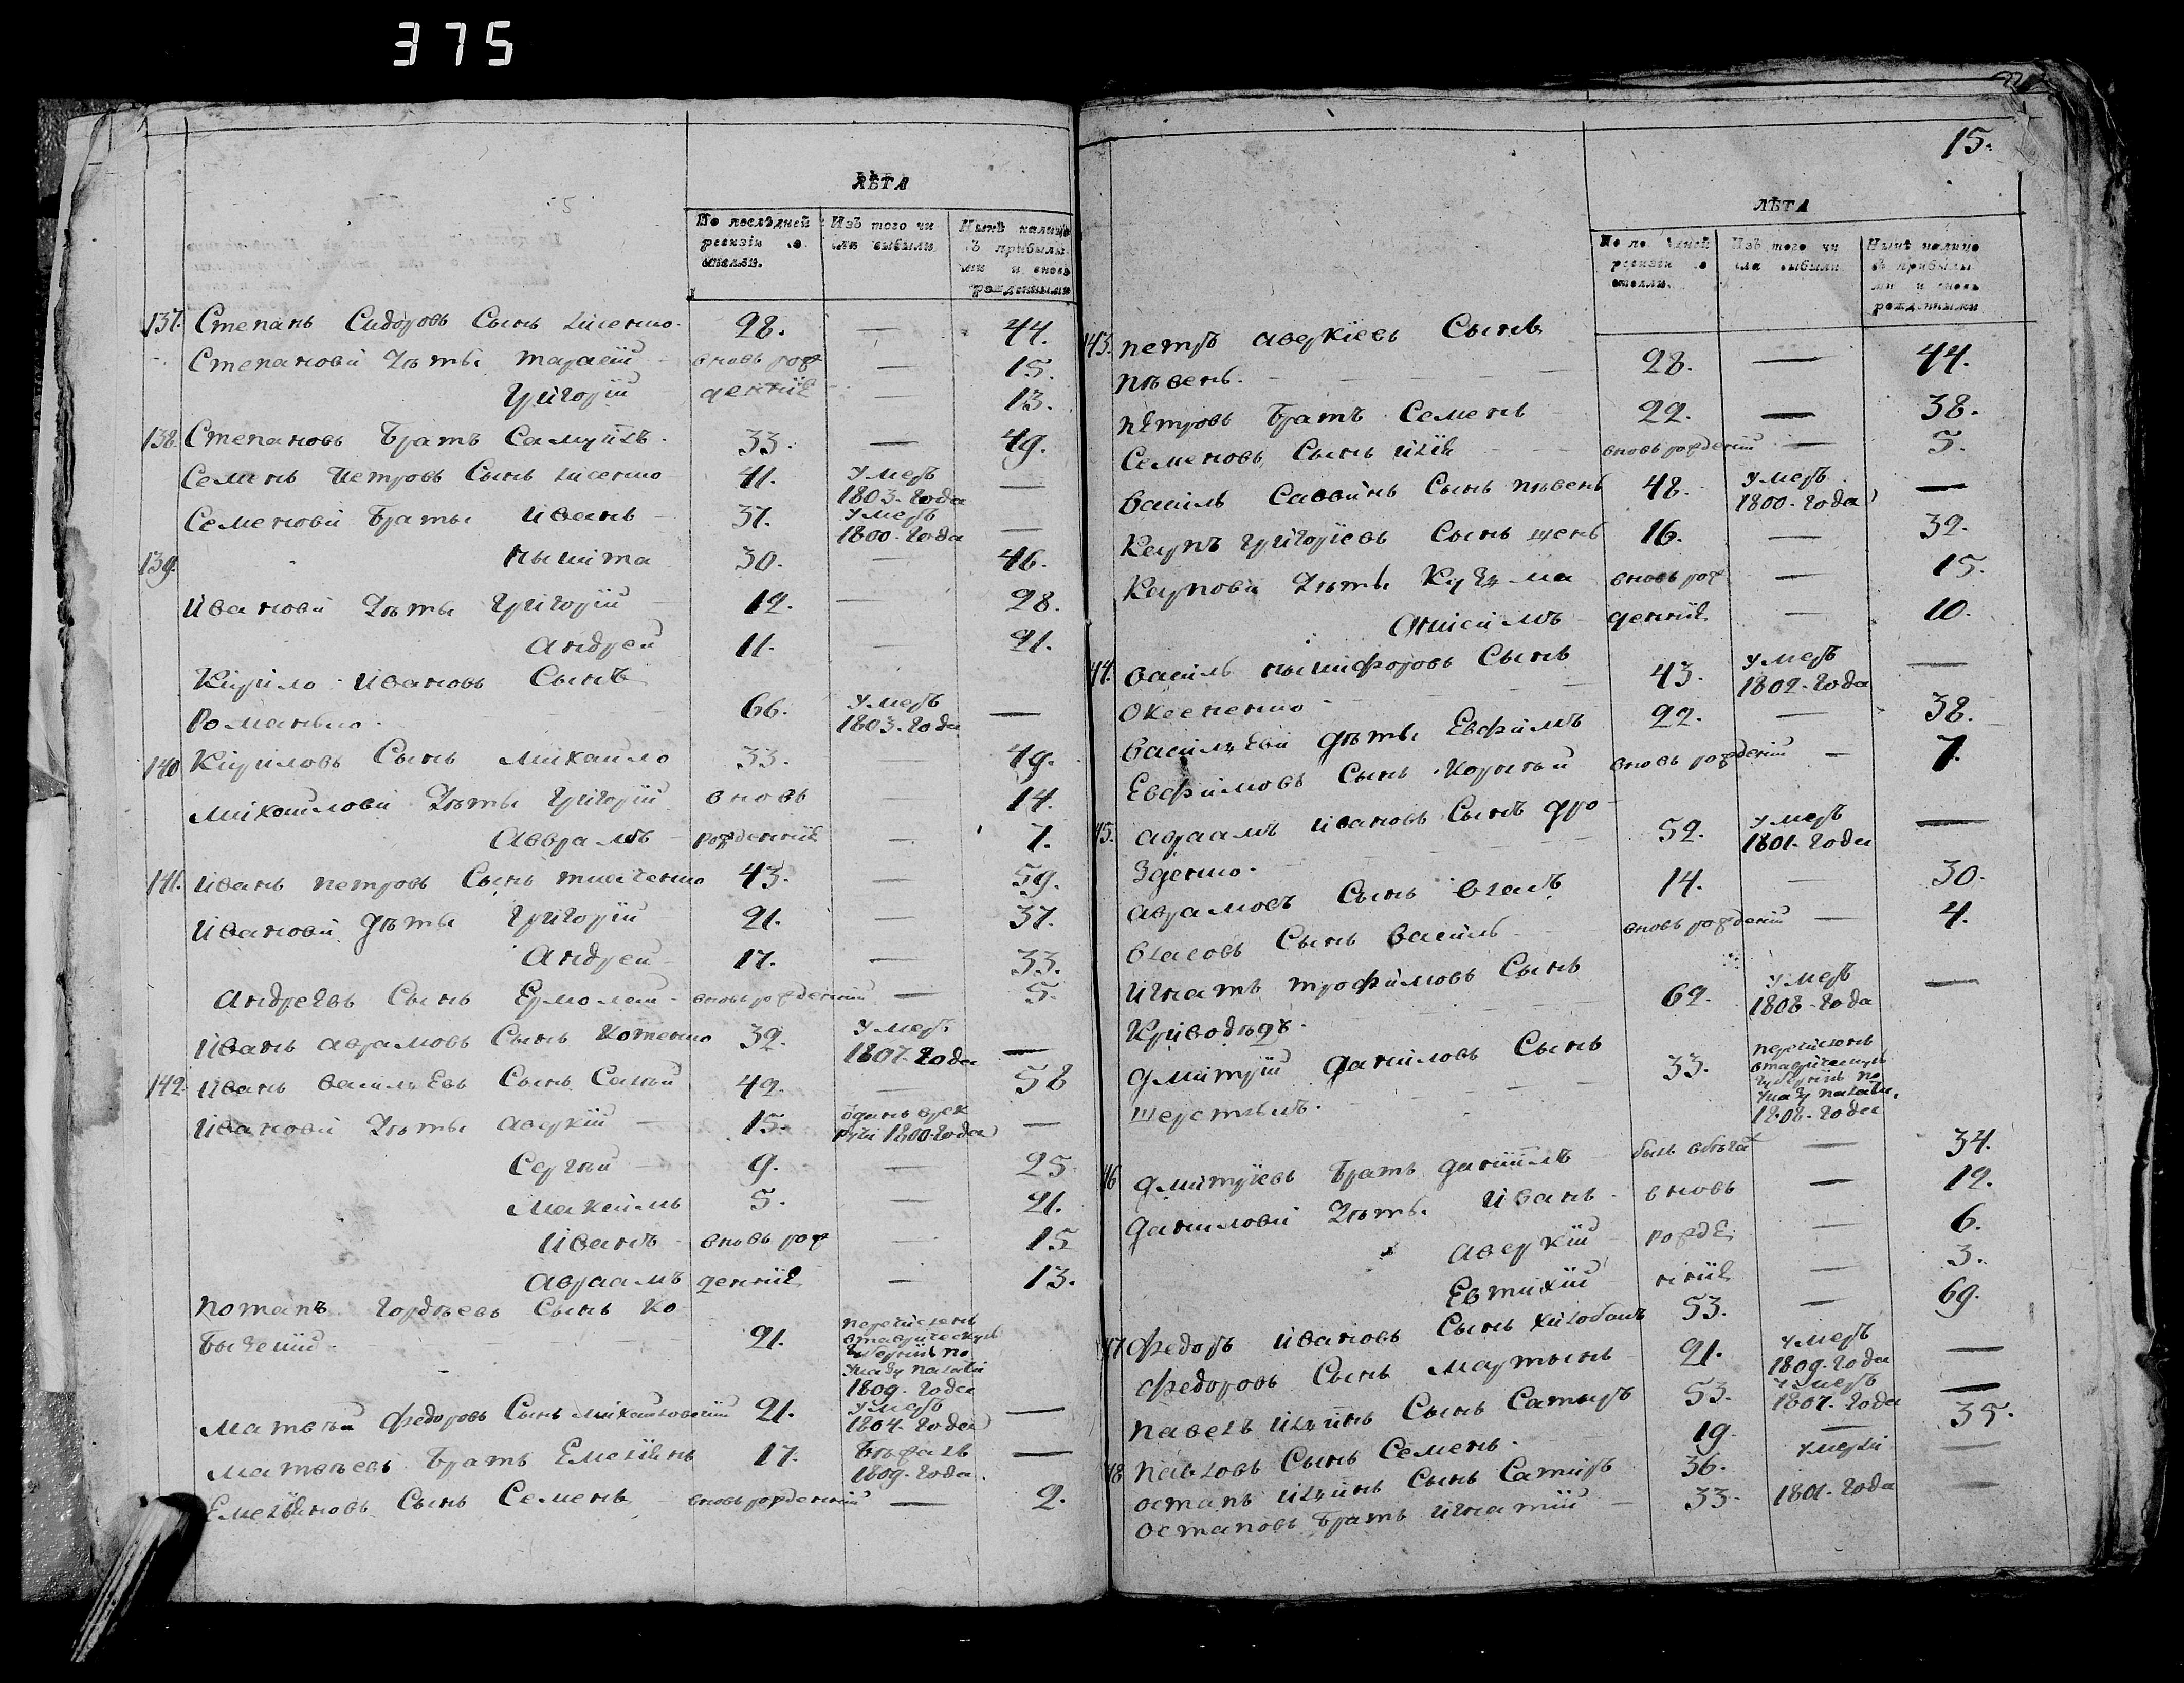 375
ЛѢТА
По послѣдней ревизіи состояли.
Изъ того числа выбыли
Нынѣ налицо съ прибылыми и вновь рожденными
137. Степанъ Сидоровъ Сынъ Лисенко. 28. — 44.
Степанови Дѣты Тарасій вновь рож — 15.
Григорій денніе — 13.
138. Степановъ братъ Самуилъ. 33. — 49.
Семенъ Петровъ Сынъ Лисенко 41. умеръ 1803. Года —
Семенови Браты Иванъ 37. умеръ 1800. Года —
139. Никита 30. — 46.
Иванови Дѣты Григорій 12. — 28.
Андрей 11. — 21.
Кирило Ивановъ Сынъ
Романько. 66. умеръ 1803. Года —
140 Кириловъ Сынъ Михайло 33. 49.
Михайлови Дѣты Григорій вновь — 14.
Авврамъ рожденніе — 7.
141. Иванъ Петровъ Сынъ 43. — 59.
Иванови дѣты Григорій 21. — 37.
Андрей 17. — 33.
Андреевъ Сынъ Ермолай вновь рожденній — 5.
Иванъ Аврамовъ Сынъ Котенко 39. умеръ 1807. Года —
142. Иванъ Васильевъ Сынъ 42. — 58
Иванови Дѣты Аверкій 15. одан врек руты 1800. Года —
Сергѣй 9. — 25
Максимъ 5. — 21.
Иванъ вновь рож — 15
Авраамъ денніе — 13.
Потапъ Гордѣевъ Сынъ Ко
21. перечисленъ втаврическую Губернію по указу палати 1809. Года
Матвѣй Федоровъ Сынъ Михайловскій 21. умеръ 1804. Года —
Матвѣевъ Братъ Емеліянъ 17. бѣжалъ 1809. Года. —
Емеліяновъ Сынъ Семенъ вновь рожденній — 2.
15.
ЛѢТА
По послѣдней ревизіи состояли.
Изъ того числа выбыли
Нынѣ налицо съ прибылыми и вновь рожденными
143. Петръ Аверкіевъ Сынъ
Пѣвень. 28. — 44.
Петровъ Братъ Семенъ 22. — 38.
Семеновъ Сынъ Илія вновь рожденній — 5.
Василь Саввинъ Сынъ Пѣвень 48. умеръ 1800. Года —
Карпъ Григоріевъ Сынъ 16. — 32.
Карпови Дѣты Кузма вновь рож — 15.
Анисимъ денніе — 10.
44. Василь Никифоровъ Сынъ
43. умеръ 1802. Года —
Васильеви дѣты Евфимъ 22. — 38.
Евфимовъ Сынъ Корнѣй вновь рожденній — 7.
45. Авраамъ Ивановъ Сынъ Дро
зденко. 52. умеръ 1801. Года —
Аврамовъ Сынъ Власъ 14. — 30.
Власовъ Сынъ Василь вновь рожденній — 4.
Игнатъ Трофимовъ Сынъ
Криводѣдъ. 62. умеръ 1808. Года —
Дмитрій Даниловъ Сынъ
33. перечисленъ втаврическую Губернію по указу палати. 1808. Года
46 Дмитріевъ Братъ Даниилъ былъ вбѣгах — 34.
Данилови Дѣты Иванъ вновь — 12.
Аверкій рожде — 6.
Евтихій нніе — 3.
47 Федоръ Ивановъ Сынъ 53. — 69.
Федоровъ Сынъ Мартынъ 21. умеръ 1809. Года —
Павелъ Ильинъ Сынъ Сатыръ 53. умеръ 1807. Года —
48 Павловъ Сынъ Семенъ. 19 — 35.
Остапъ Ильинъ Сынъ Сатиръ 36. умерли —
Остаповъ Братъ Игнатій 33. 1801. Года —